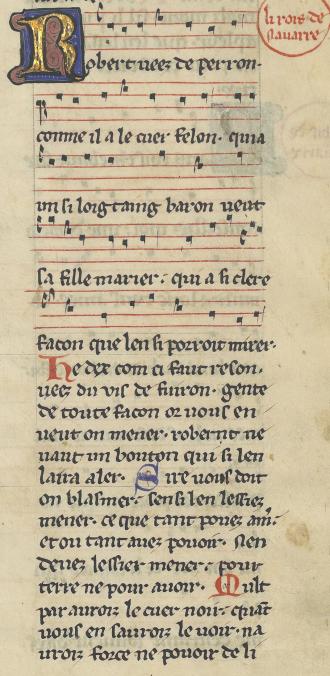 li rois de
nauarre
Robert ueez de perron.
comme il a le cuer felon. qua
un si loigtaing baron ueut
sa fille marier. qui a si clere
facon que len si porroit mirer.
He dex com ci faut reson.
ueez du vis de fuiron. gente
de toute facon or uous en
ueut on mener. robert ne
uaut un bouton qui si len
laira aler. Sire uous doit
on blasmer. sensi len lessiez
mener. ce que tant pouez am̄.
et ou tant auez pouoir. Nen
deuez lessier mener. pour
terre ne pour auoir. Mult
par auroiz le cuer noir. quāt
uous en sauroiz le uoir. na
uroiz force ne pouoir de li